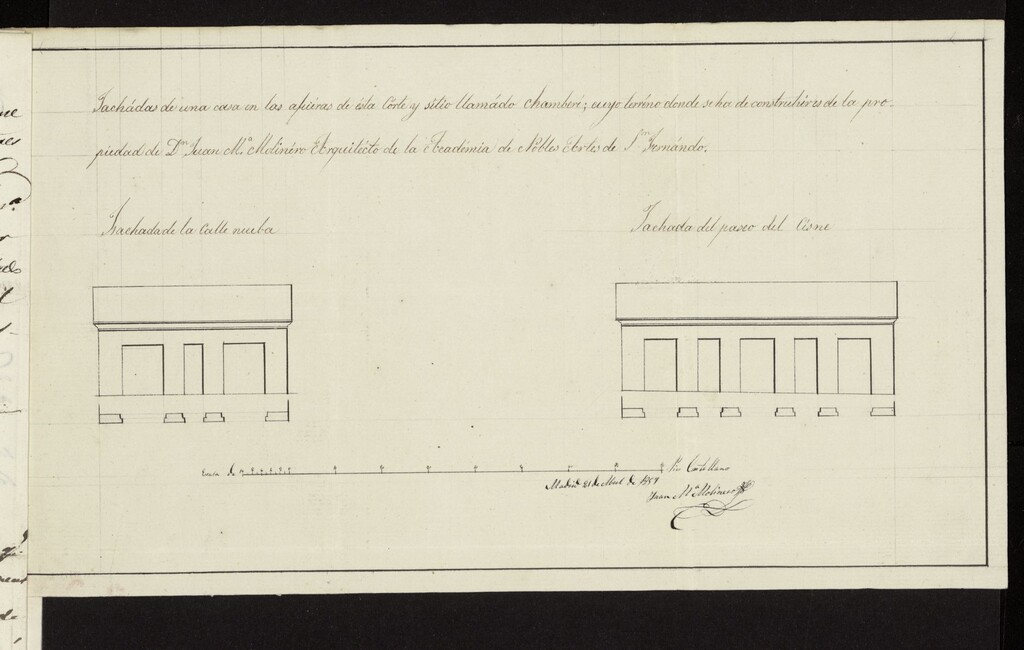 Fachádas de una casa en las afueras de ésta Córte y sitio llamádo Chamberí; cuyo terréno donde se ha de construhir es de la pro-
piedad de Dⁿ Juan Mᵃ Molinéro Arquitécto de la Académia de Nobles Artes de Sⁿ Fernándo.
Fachada de la Calle nueba
Fachada del paseo del Cisne
Escala de
Pies Castellanos
Madrid 21 de Abril de
Juan Mᵃ Molinero